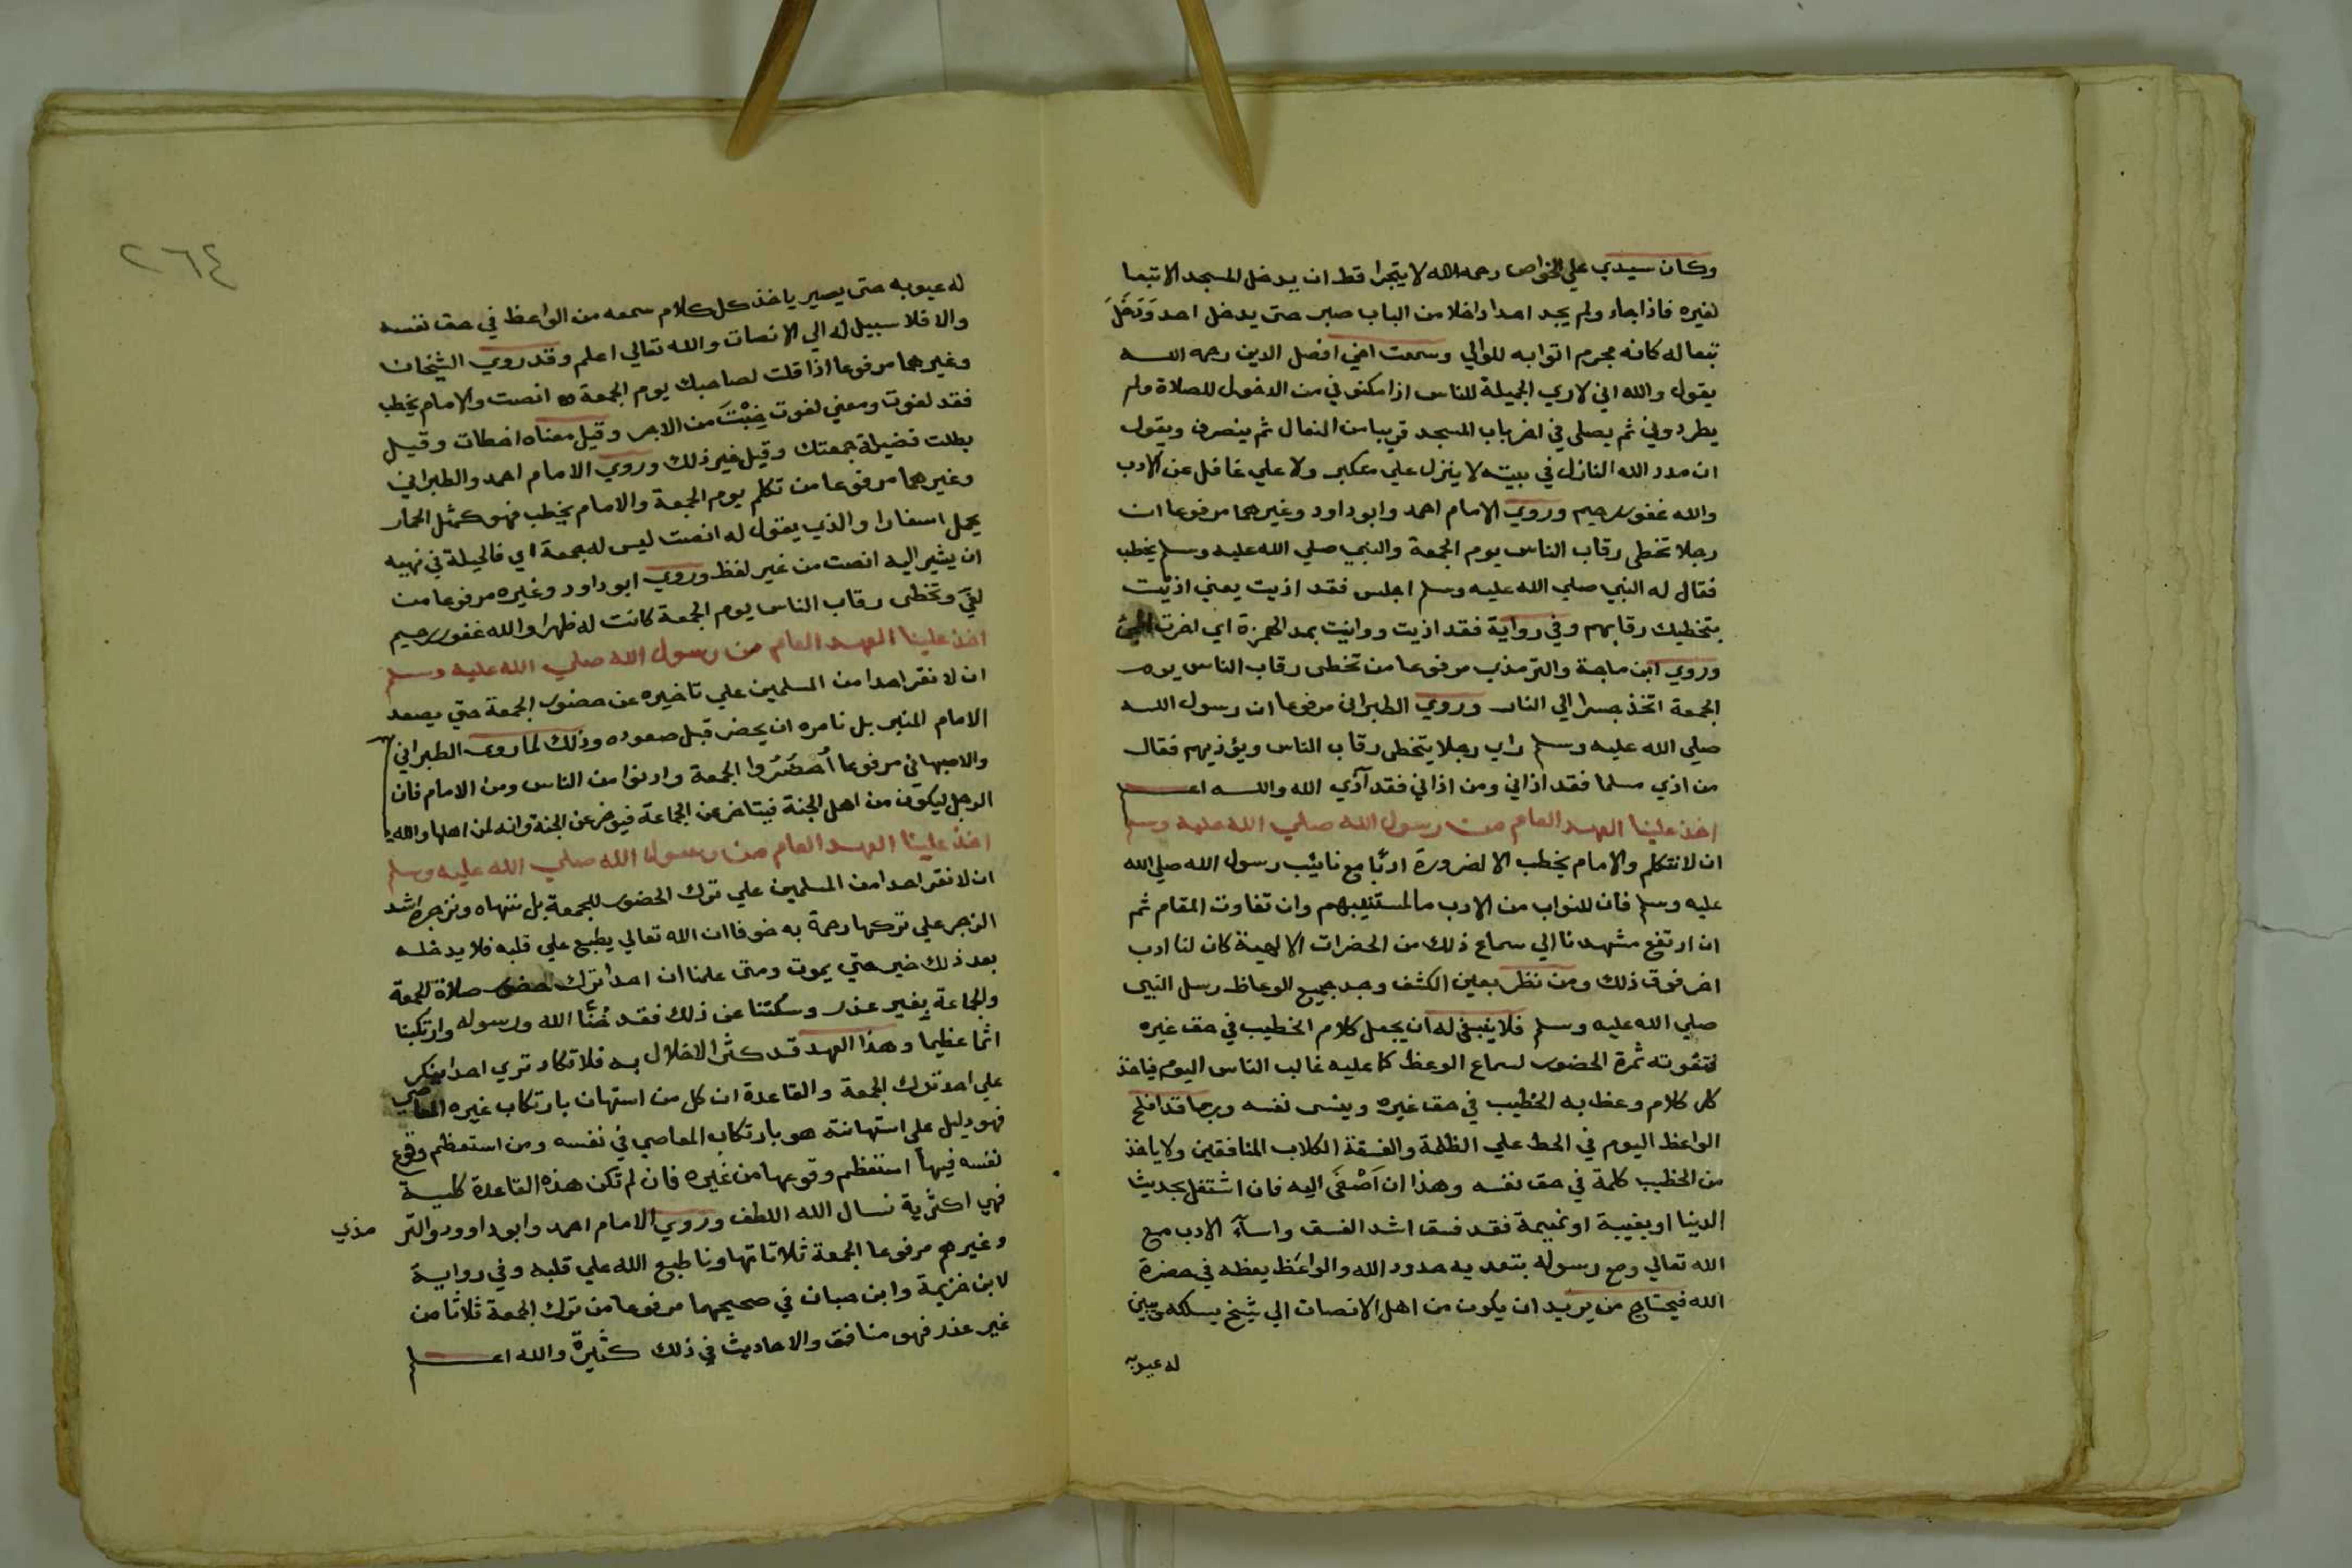 وكان سيدي علي الخواص رحمه الله لا يتجرا قط ان يدخل المسجد الا تبعا
لغيره فاذا جاء ولم يجد احدا داخلا من الباب صبر حتى يدخل احد وَدَخَلَ
تبعا له كانه مجرم اتوا به للوالي وسمعت اخي افضل الدين رحمه الله
يقول والله اني لاري الجميلة للناس اذا مكنوني من الدخول للصلاة ولم
يطردوني ثم يصلي في اخر باب المسجد قريبا من النعال ثم ينصرف ويقول
ان مدد الله النازل في بيته لا ينزل علي متكبر ولا علي غافل عن الادب
والله غفور رحيم وروي الامام احمد وابو داود وغيرهما مرفوعا ان
رجلا تخطى رقاب الناس يوم الجمعة والنبي صلي الله عليه وسلم يخطب
فقال له النبي صلي الله عليه وسلم اجلس فقد اذيت يعني اذيت
بتخطيك رقابهم وفي رواية فقد اذيت ووانيت بمد الهمزة اي اخرت المجئ
وروي ابن ماجة والترمذي مرفوعا من تخطى رقاب الناس يوم
الجمعة اتخذ جسرا الي النار وروي الطبراني مرفوعا ان رسول الله
صلي الله عليه وسلم راي رجلا يتخطى رقاب الناس ويؤذيهم فقال
من اذي مسلما فقد اذاني ومن اذاني فقد آذي الله والله اعلم
اخذ علينا العهد العام من رسول الله صلي الله عليه وسلم
ان لا نتكلم والامام يخطب الا لضرورة ادبًا مع نائب رسول الله صلي الله
عليه وسلم فان للنواب من الادب ما لمستنيبهم وان تفاوت المقام ثم
ان ارتفع مشهدنا الي سماع ذلك من الحضرات الالهية كان لنا ادب
اخر فوق ذلك ومن نظر بعين الكشف وجد جميع الوعاظ رسل النبي
صلي الله عليه وسلم فلا ينبغي له ان يجعل كلام الخطيب في حق غيره
فتفوته ثمرة الحضور لسماع الوعظ كما عليه غالب الناس اليوم فياخذ
كل كلام وعظ به الخطيب في حق غيره وينسى نفسه وربما قد افلح
الواعظ اليوم في الحط علي الظلمة والفسقة الكلاب المنافقين ولا ياخذ
من الخطيب كلمة في حق نفسه وهذا ان اَصْغَى اليه فان اشتغل بحديث
الدنيا او بغيبة او نميمة فقد فسق اشد الفسق واساَء الادب مع
الله تعالي ومع رسوله بتعديه حدود الله والواعظ يعظه في حضرة
الله فيحتاج من يريد ان يكون من اهل الانصات الي شيخ يسلكه ويبين
له عيوبه
٢٦٤
له عيوبه حتى يصير ياخذ كل كلام سمعه من الواعظ في حق نفسه
والا فلا سبيل له الي الانصات والله تعالي اعلم وقد روي الشيخان
وغيرهما مرفوعا اذا قلت لصاحبك يوم الجمعة انصت والامام يخطب
فقد لغوت ومعني لغوت خِبْتَ من الاجر وقيل معناه اخطات وقيل
بطلت فضيلة جمعتك وقيل غير ذلك وروي الامام احمد والطبراني
وغيرهما مرفوعا من تكلم يوم الجمعة والامام يخطب فهو كمثل الحمار
يحمل اسفارا والذي يقول له انصت ليس له جمعة اي فالحيلة في نهيه
ان يشير اليه انصت من غير لفظ وروي ابو داود وغيره مرفوعا من
لغَيَ وتخطى رقاب الناس يوم الجمعة كانت له ظهرا والله غفور رحيم
اخذ علينا العهد العام من رسول الله صلي الله عليه وسلم
ان لا نقر احدا من المسلمين علي تاخيره عن حضور الجمعة حتي يصعد
الامام المنبر بل نامره ان يحضر قبل صعوده وذلك لما روى الطبراني
والاصبهاني مرفوعا اُحضُرُوا الجمعة وادنوا من الناس ومن الامام فان
الرجل ليكون من اهل الجنة فيتاخر عن الجماعة فيوخر عن الجنة وانه لمن اهلها والله
اخذ علينا العهد العام من رسول الله صلي الله عليه وسلم
ان لا نقر احدا من المسلمين علي ترك الحضور للجمعة بل ننهاه ونزجره اشد
الزجر علي تركها رحمة به خوفا ان الله تعالي يطبع علي قلبه فلا يدخله
بعد ذلك خير حتي يموت ومتى علمنا ان احدا ترك حضور صلاة الجمعة
والجماعة بغير عذر وسكتنا عن ذلك فقد خُنَّا الله ورسوله وارتكبنا
اثما عظيما وهذا العهد قد كثر الاخلال به فلا تكاد تري احدا ينكر
علي احد ترك الجمعة والقاعدة ان كل من استهان بارتكاب غيره المعاصي
فهو دليل علي استهانته هو بارتكاب المعاصي في نفسه ومن استعظم وقوع
نفسه فيها استعظم وقوعها من غيره فان لم تكن هذه القاعدة كلية
فهي اكثرية نسال الله اللطف وروي الامام احمد وابو داوود والتر مذي
وغيرهم مرفوعا الجمعة ثلاثا تهاونا طبع الله علي قلبه وفي رواية
لابن خزيمة وابن حبان في صحيحهما مرفوعا من ترك الجمعة ثلاثا من
غير عذر فهو منافق والاحاديث في ذلك كثيرة والله اعلم